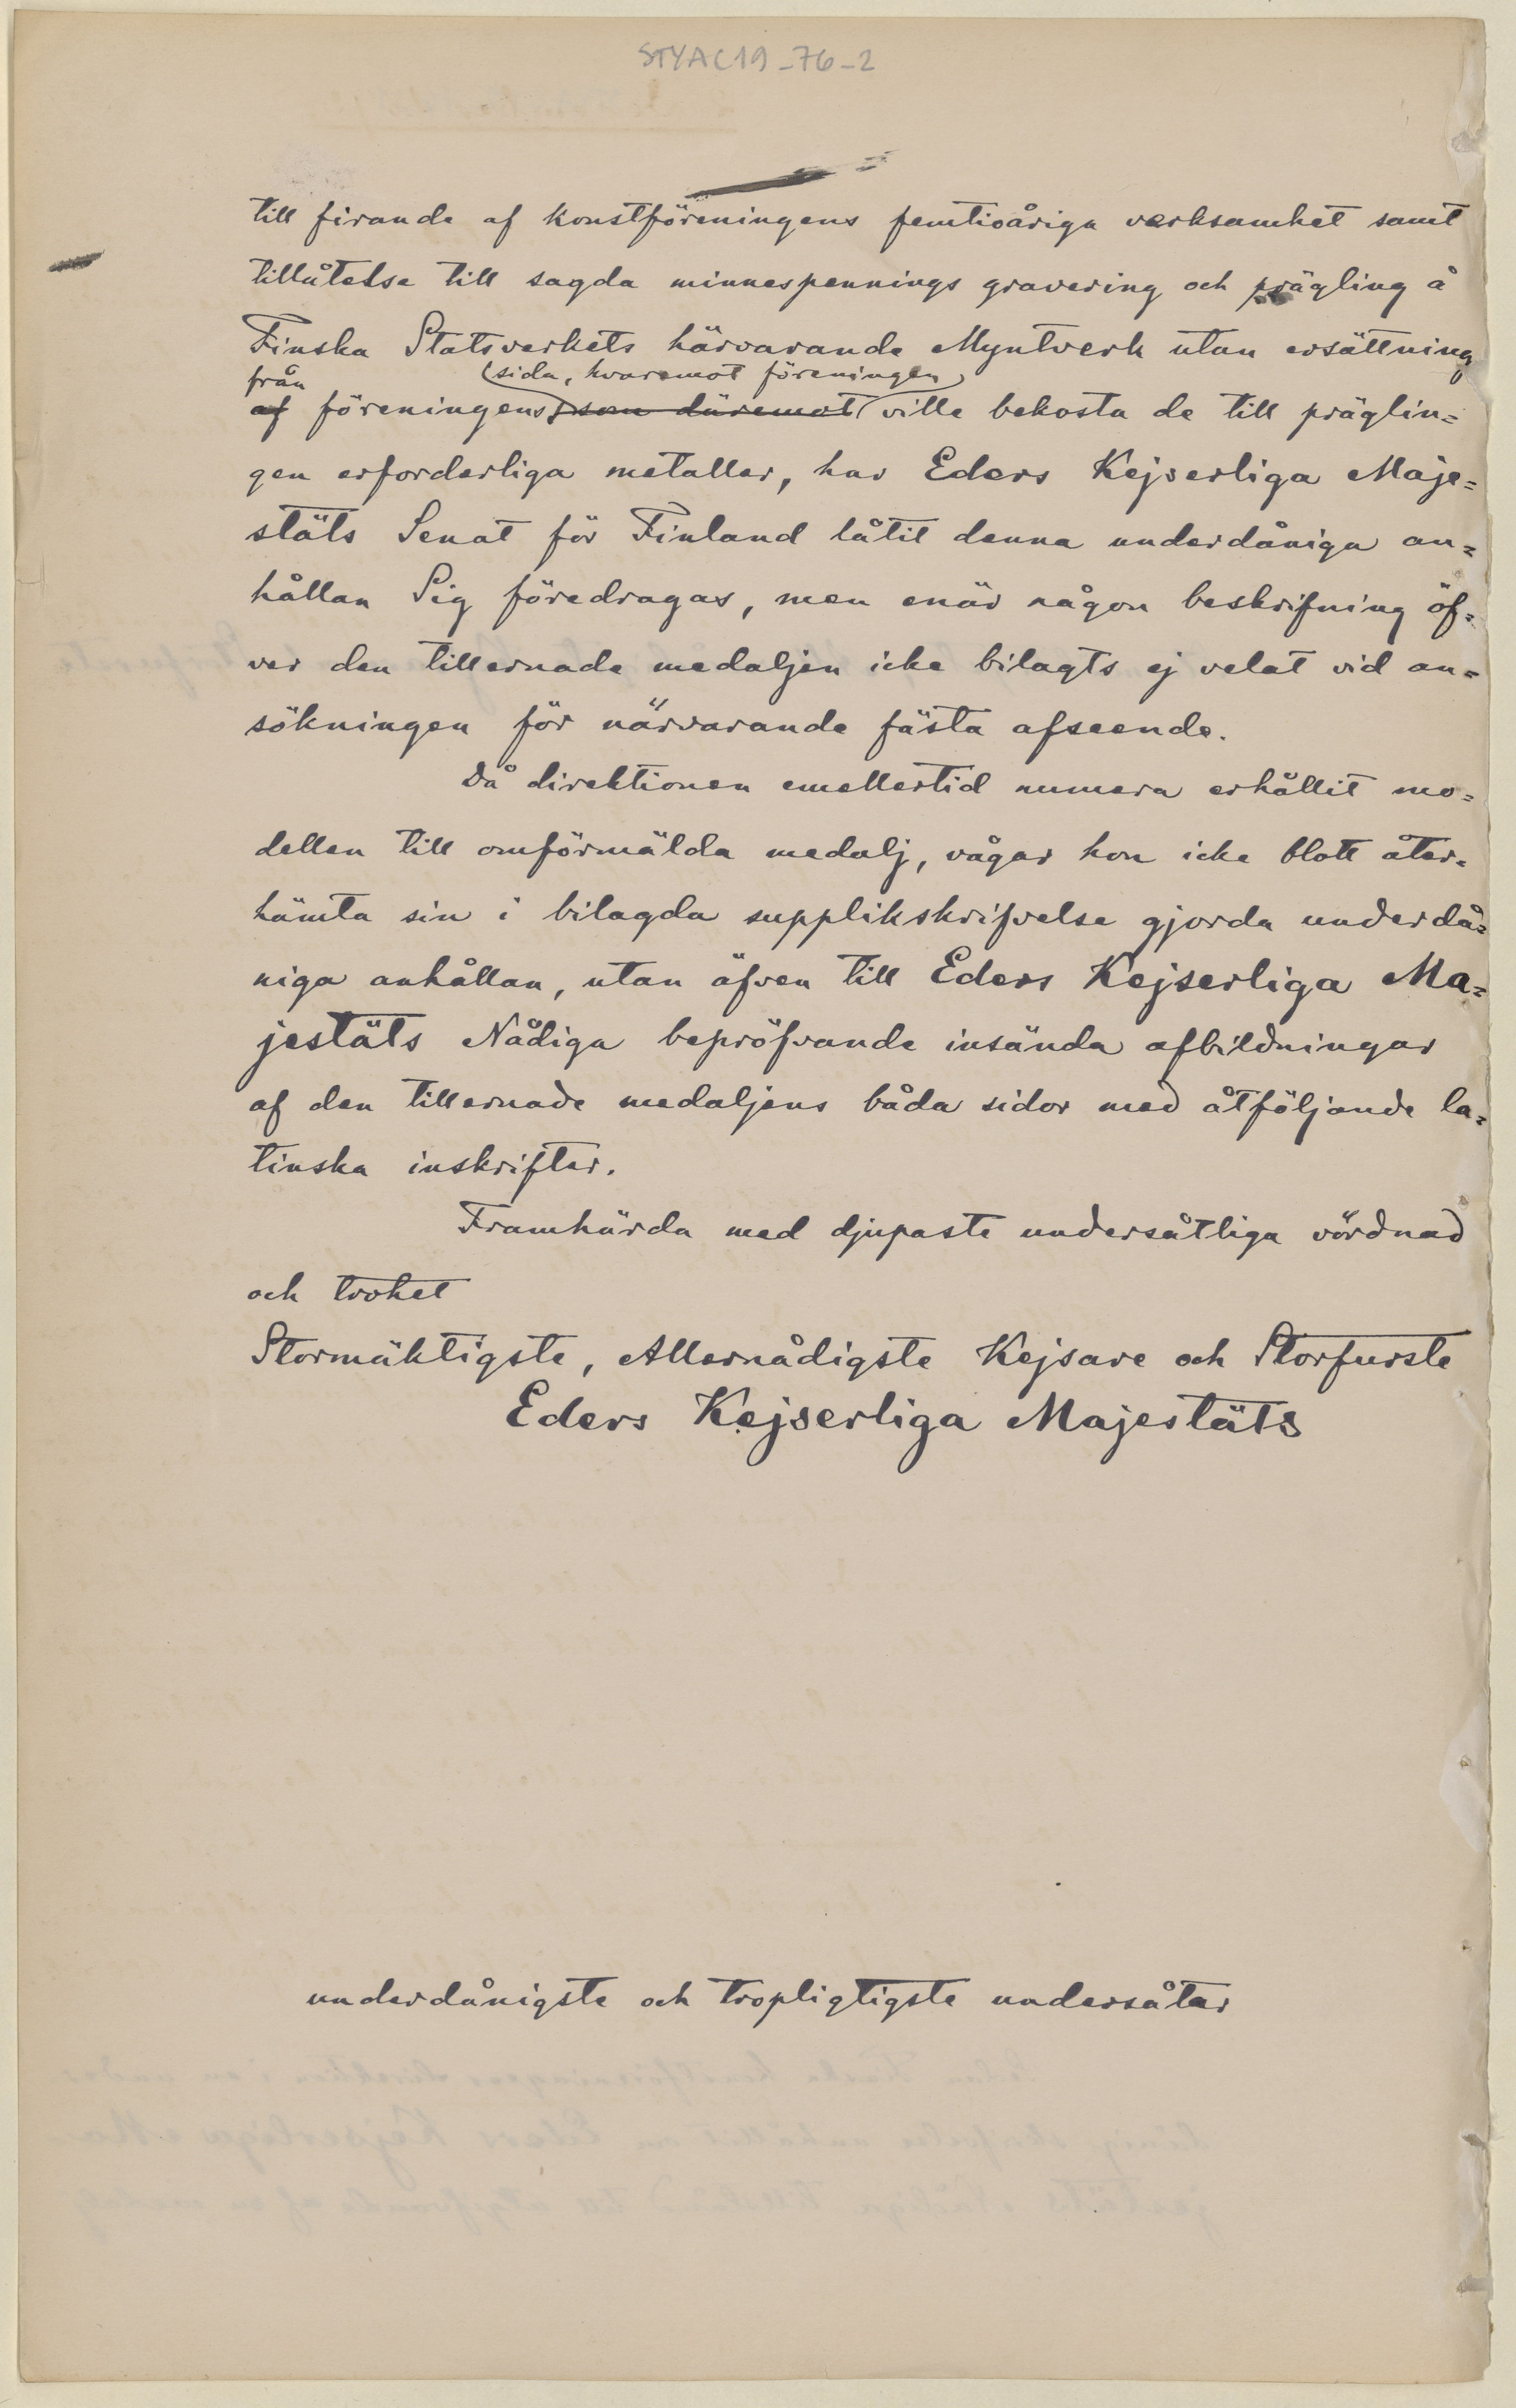 STYAC19_76_2
till firande af konstföreningens femtioåriga verksamhet samt
tillåtelse till sagda minnespennings gravering och prägling å
Finska Statsverkets härvarande Myntverk utan ersättning
från (sida, hvaremot föreningen)
af föreningens, som däremot ville bekosta de till präglin=
gen erforderliga metaller, har Eders Kejserliga Maje=
stäts Senat för Finland låtit denna underdåniga an=
hållan Sig föredragas, men enär någon beskrifning öf=
ver den tillernade medaljen icke bilagts ej velat vid an=
sökningen för närvarande fästa afseende.
Då direktionen emellertid numera erhållit mo=
dellen till omförmälda medalj, vågar hon icke blott åter=
hämta sin i bilagda supplikskrifvelse gjorda underdå=
niga anhållan, utan äfven till Eders Kejserliga Ma=
jestäts Nådiga bepröfvande insända afbildningar
af den tillernade medaljens båda sidor med åtföljande la=
tinska inskrifter.
Framhärda med djupaste undersåtliga vördnad
och trohet
Stormäktigste, Allernådigste Kejsare och Storfurste
Eders Kejserliga Majestäts
underdånigste och tropligtigste undersåtar